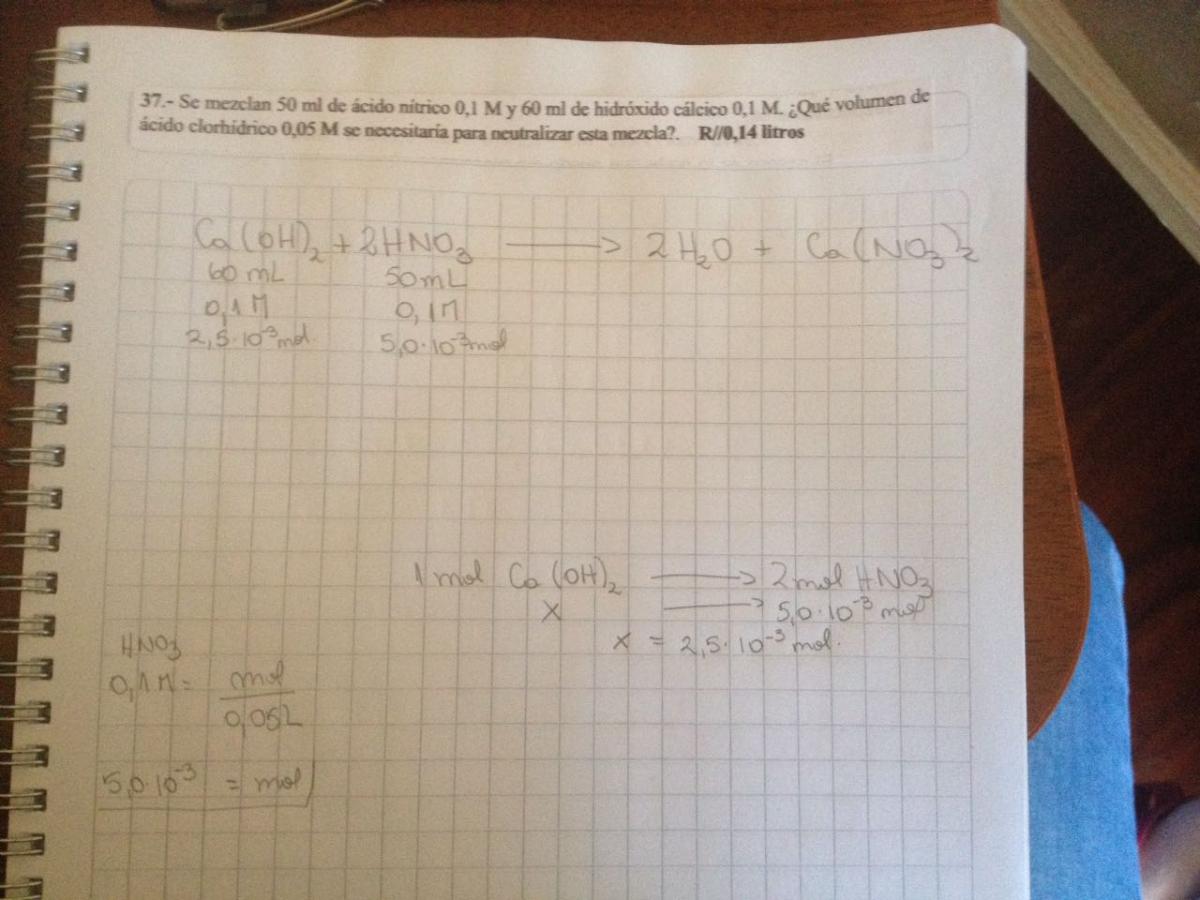 37.- Se mezclan 50 ml de ácido nítrico 0,1 M y 60 ml de hidróxido cálcico 0,1 M. ¿Qué volumen de
ácido clorhídrico 0,05 M se necesitaría para neutralizar esta mezcla?. R//0,14 litros
Ca(OH)₂ + 2HNO₃ ⟶ 2H₂O + Ca(NO₃)₂
60 mL 50 mL
0,1 M 0,1 M
2,5·10⁻³ mol. 5,0·10⁻³ mol
1 mol Ca(OH)₂ ⟶ 2 mol HNO₃
X ⟶ 5,0·10⁻³ mol
x = 2,5·10⁻³ mol.
HNO₃
0,1 M = mol
0,05L
5,0·10⁻³ = mol